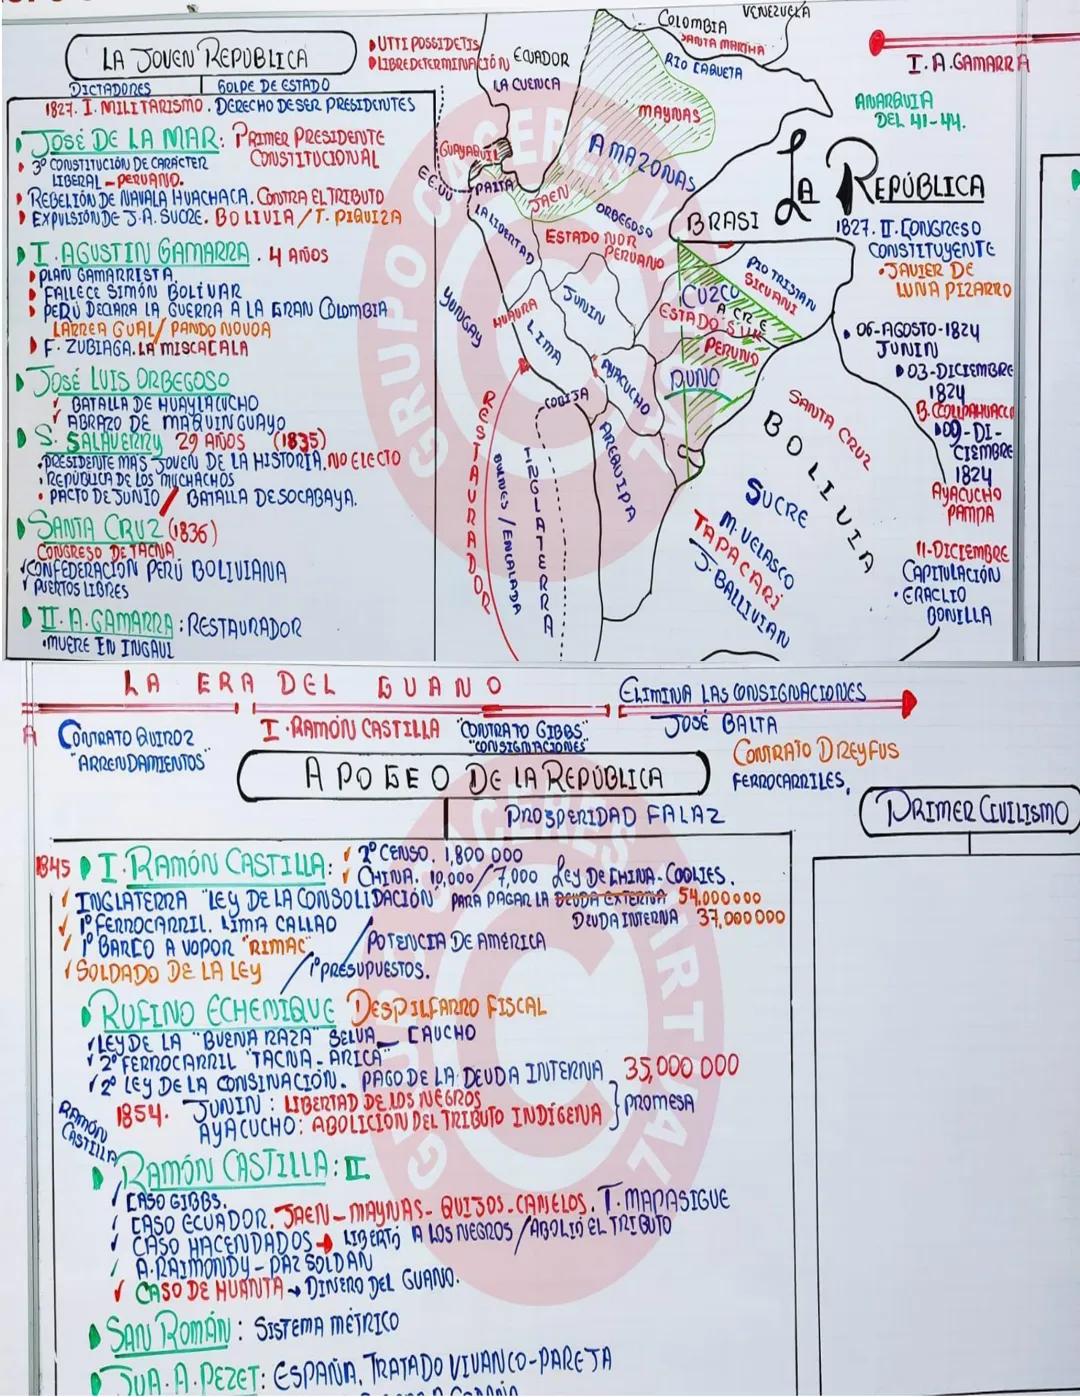 LA JOVEN REPÚBLICA
DICTADORES
GOLPE DE ESTADO
1827. I. MILITARISMO. DERECHO DE SER PRESIDENTES
JOSÉ DE LA MAR: PRIMER PRESIDENTE
CONSTITUCIONAL
3º CONSTITUCIÓN DE CARÁCTER
LIBERAL - PERUANO.
REBELIÓN DE NAVALA HUACHACA. CONTRA EL TRIBUTO
EXPULSIÓN DE J.A. SUCRE. BOLIVIA/T. PIQUIZA
I. AGUSTIN GAMARRA. 4 AÑOS
PLAN GAMARRISTA
FALLECE SIMÓN BOLIVAR
PERÚ DECLARA LA GUERRA A LA GRAN COLOMBIA
LARREA GUAL/ PANDO NOVOA
F. ZUBIAGA. LA MISCACALA
JOSÉ LUIS ORBEGOSO
BATALLA DE HUAYLACUCHO
ABRAZO DE MAQUINGUAYO
S. SALAVERRY 29 AÑOS (1835)
PRESIDENTE MAS JOVEN DE LA HISTORIA. NO ELECTO
REPÚBLICA DE LOS MUCHACHOS
PACTO DE JUNIO / BATALLA DE SOCABAYA.
SANTA CRUZ (1836)
CONGRESO DE TACNA
CONFEDERACIÓN PERÚ BOLIVIANA
PUERTOS LIBRES
II. A. GAMARRA: RESTAURADOR
MUERE EN INGAUI
UTTI POSSIDETIS
LIBRE DETERMINACIÓN
ECUADOR
LA CUENCA
COLOMBIA
VENEZUELA
SANTA MARTHA
RIO CAQUETA
MAYNAS
AMAZONAS
GUAYAQUIL
EE.UU
PAITA
JAEN
LA LIBERTAD
ORBEGOSO
ESTADO NOR
PERUANO
BRASI
PIO TRISTAN
SICUANI
CUZCO
ACRE
ESTADO SUR
PERUNO
PUNO
YUNGAY
HUAURA
LIMA
JUNIN
AYACUCHO
COBIJA
AREQUIPA
RESTAURADOR
BULNES/ENCALADA
INGLATERRA
SANTA CRUZ
BOLIVIA
SUCRE
M. VELASCO
TAPACARI
J. BALLIVIAN
I. A. GAMARRA
ANARQUIA
DEL 41-44.
LA REPÚBLICA
1827. II. CONGRESO
CONSTITUYENTE
JAVIER DE
LUNA PIZARRO
06-AGOSTO-1824
JUNIN
03-DICIEMBRE
1824
09-DI-
CIEMBRE
1824
AYACUCHO
PAMPA
11-DICIEMBRE
CAPITULACIÓN
ERACLIO
BONILLA
LA ERA DEL GUANO
ELIMINA LAS CONSIGNACIONES
CONTRATO QUIROZ
"ARRENDAMIENTOS"
I. RAMÓN CASTILLA
"CONTRATO GIBBS"
"CONSIGNACIONES"
JOSÉ BALTA
CONTRATO DREYFUS
FERROCARRILES,
APOGEO DE LA REPÚBLICA
PROSPERIDAD FALAZ
PRIMER CIVILISMO
1845 I. RAMÓN CASTILLA: 2º CENSO. 1,800 000
CHINA. 10,000/7,000 LEY DE CHINA-COOLIES.
INGLATERRA "LEY DE LA CONSOLIDACIÓN" PARA PAGAR LA DEUDA EXTERNA 54,000000
DEUDA INTERNA 37,000000
1º FERROCARRIL. LIMA CALLAO
1º BARCO A VAPOR "RIMAC"
POTENCIA DE AMERICA
SOLDADO DE LA LEY
1º PRESUPUESTOS.
RUFINO ECHENIQUE DESPILFARRO FISCAL
LEY DE LA "BUENA RAZA" SELVA CAUCHO
2º FERROCARRIL "TACNA-ARICA"
2º LEY DE LA CONSINACIÓN. PAGO DE LA DEUDA INTERNA 35,000 000
RAMÓN CASTILLA
1854. JUNIN: LIBERTAD DE LOS NEGROS
AYACUCHO: ABOLICION DEL TRIBUTO INDÍGENA
PROMESA
RAMÓN CASTILLA: II.
CASO GIBBS.
CASO ECUADOR. JAEN-MAYNAS-QUIJOS-CANELOS. T. MAPASIGUE
CASO HACENDADOS → LIBERTÓ A LOS NEGROS/ABOLIÓ EL TRIBUTO
A. RAIMONDY-PAZ SOLDAN
CASO DE HUANTA → DINERO DEL GUANO.
SAN ROMÁN: SISTEMA MÉTRICO
JUA. A. PEZET: ESPAÑA, TRATADO VIVANCO-PAREJA